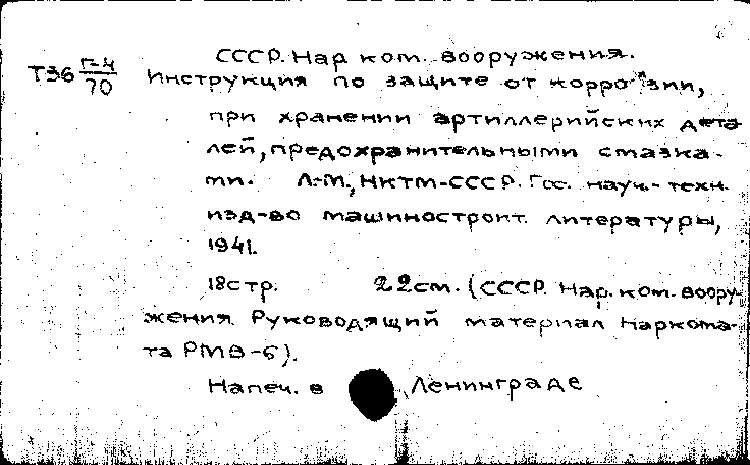 СССР. Нар ком. вооружения.
Т36 Г-4/70 Инструкция по защите от корро-зии,
при хранении артиллерийских дета-
лей, предохранительными смазка-
ми. Л.-М., НКТМ-СССР. Гос. науч.-техн.
изд-во машиностроит. литературы,
1941.
18 стр. 22 см. (СССР. Нар. ком. воору-
жения. Руководящий материал Наркома-
та РМВ-6).
Напеч. в Ленинграде